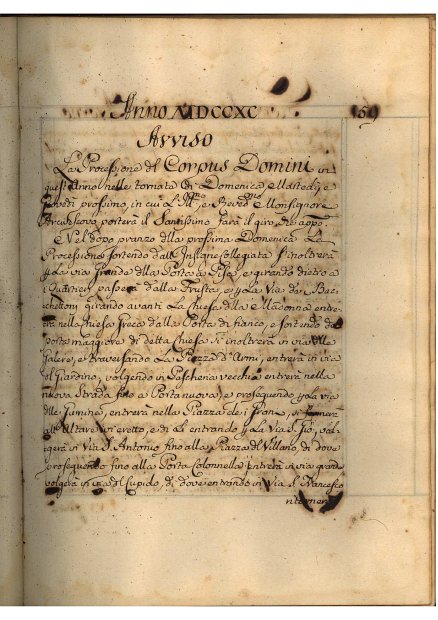 Anno MDCCXC 159
Avviso
La Processione del Corpus Domini in
quest'Anno nelle tornate di Domenica, Martedi, e
Giovedi prossimo, in cui L'Ill.mo e Rev.mo Monsignore
Arcivescovo porterà il Santissimo farà il giro che appo.
Nel dopo pranzo della prossima Domenica La
Processione sortendo dall'Insigne Collegiata s'inoltrerà
p la via grande della Porta a Pisa, e girando dietro a
i Quartieri passerà dalla Frusta, e p La Via dei Bec=
chettoni girando avanti La Chiesa della Madonna entre=
rà nella Chiesa Greca dalla Porta di fianco, e sortendo dal
porta maggiore di detta Chiesa si inoltrerà in via delle
Galere, e traversando La Piazza d'Armi, entrerà in via
del Giardino, volgendo in Pescheria vecchia entrerà nella
nuova Strada fino a Porta nuova, e proseguendo p la via
delle entrerà nella Piazza dei Grani, si fermerà
all'Altare ivi eretto, e di Lì entrando p La Via S. Gio, vol=
gerà in Via S. Antonio fino alla Piazza del Villano di dove
proseguendo fino alla Porta Colonnella entrerà in via grande
volgerà in via del Cupido, di dove entrando in Via S. Francesco